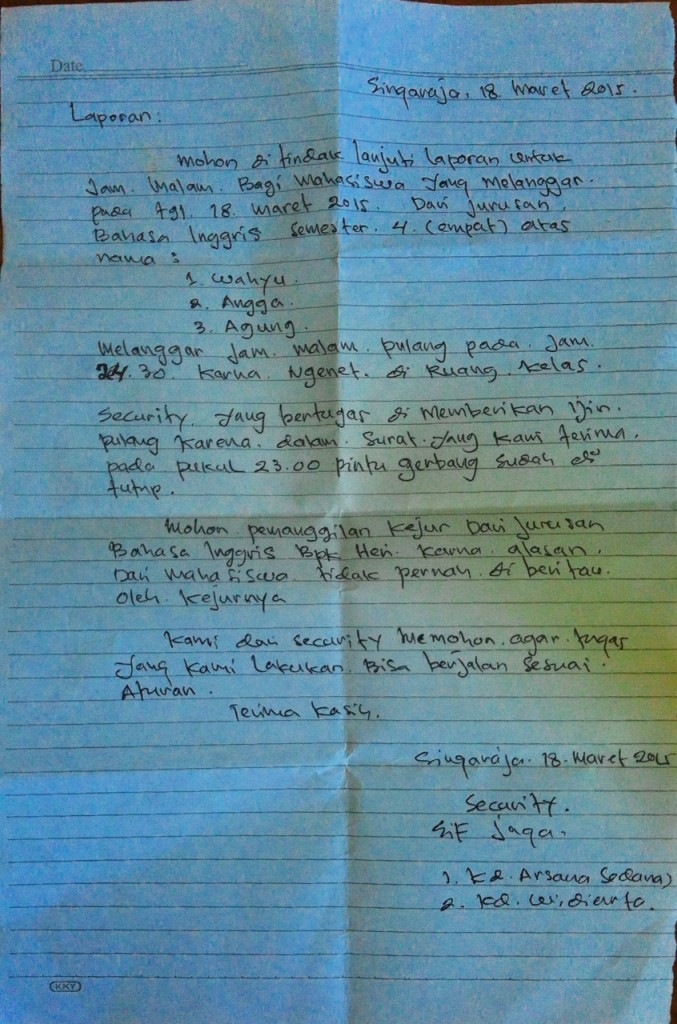 Date
Singaraja, 18 Maret 2015.
Laporan:
Mohon di tindak lanjuti laporan untuk
Jam. Malam. Bagi Mahasiswa yang melanggar.
pada tgl. 18. Maret 2015. Dari jurusan.
Bahasa Inggris Semester. 4. (empat) atas
nama:
1. Wahyu.
2. Angga.
3. Agung.
Melanggar Jam. malam. pulang pada. Jam.
24.30. Karna. Ngenet. di Ruang. Kelas.
Security. yang bertugas di Memberikan Ijin.
pulang karena. dalam. Surat. yang kami terima.
pada pukul 23.00 pintu gerbang sudah di
tutup.
Mohon. pemanggilan Kejur Dari jurusan
Bahasa Inggris Bpk Heri. Karna. alasan.
Dari mahasiswa. tidak pernah. di beritau.
oleh. kejurnya
Kami dari security Memohon. agar. tugas
yang kami Lakukan. Bisa berjalan sesuai.
Aturan.
Terima Kasih.
Singaraja. 18. Maret 2015
Security.
Sif Jaga.
1. Kd. Arsana
2. Kd.
KKY